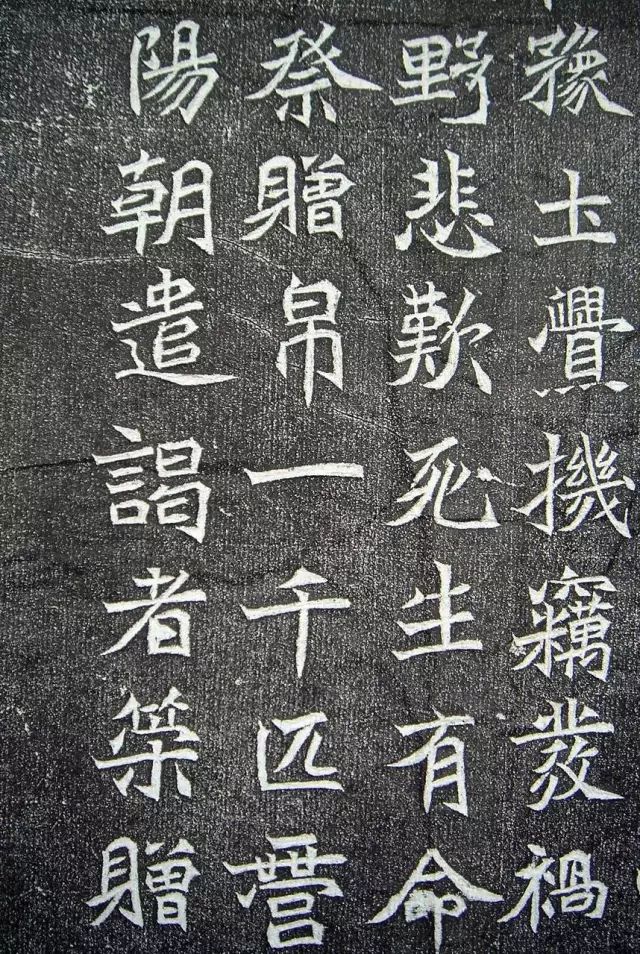 豫土釁機竊發禍
野悲歎死生有命
祭贈帛一千匹營
陽朝遣謁者策贈